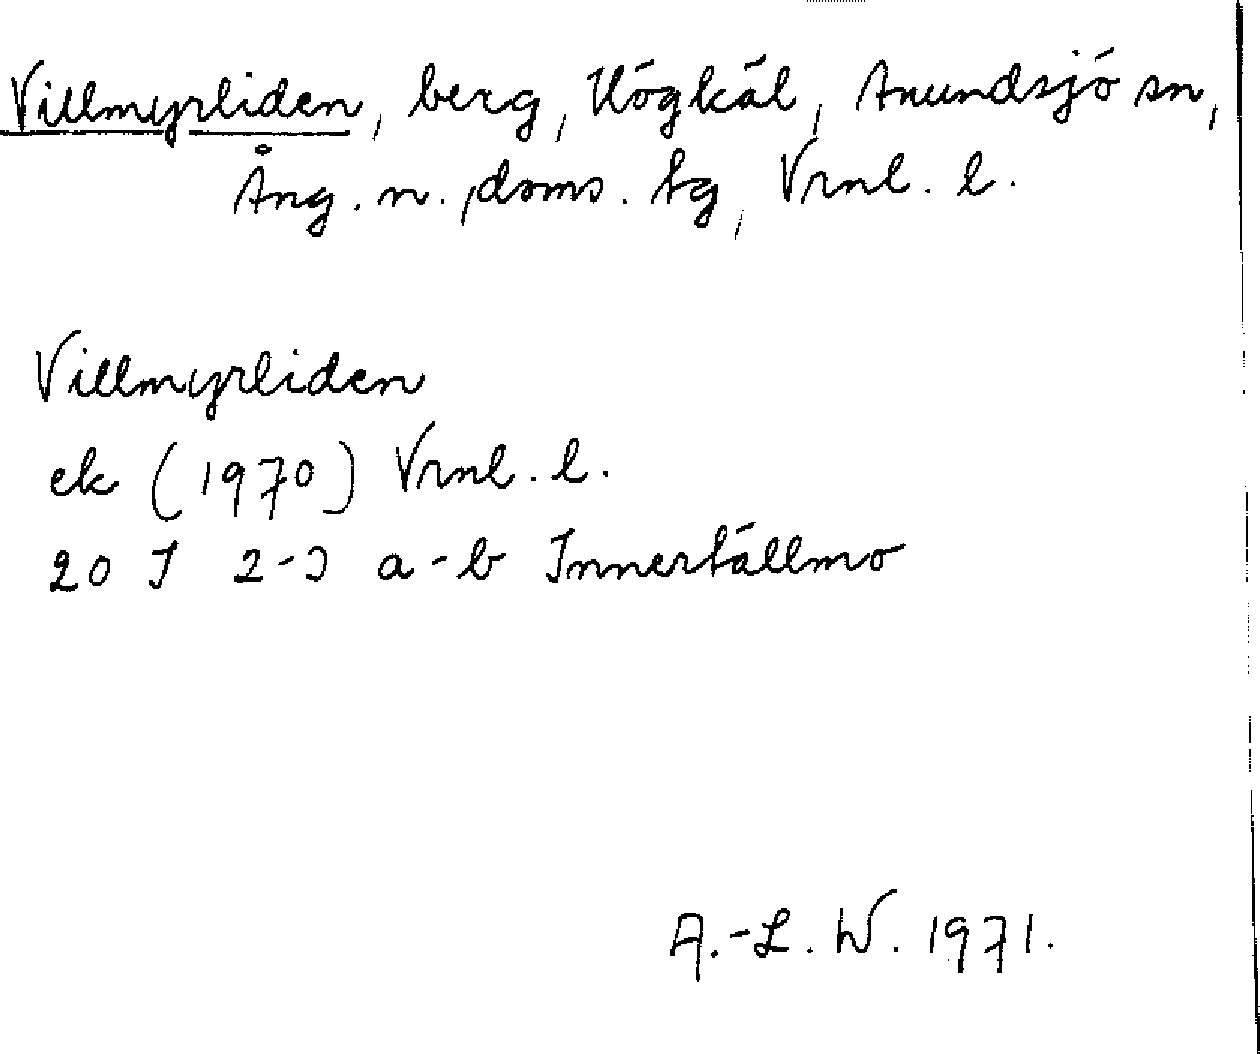 Villmyrliden, berg, Högkäl, Anundsjö sn,
Ång. n. doms. tg, Vrnl. l.
Villmyrliden
ek (1970) Vrnl. l.
20 I 2-3 a-b Innertällmo
A.-L. W. 1971.